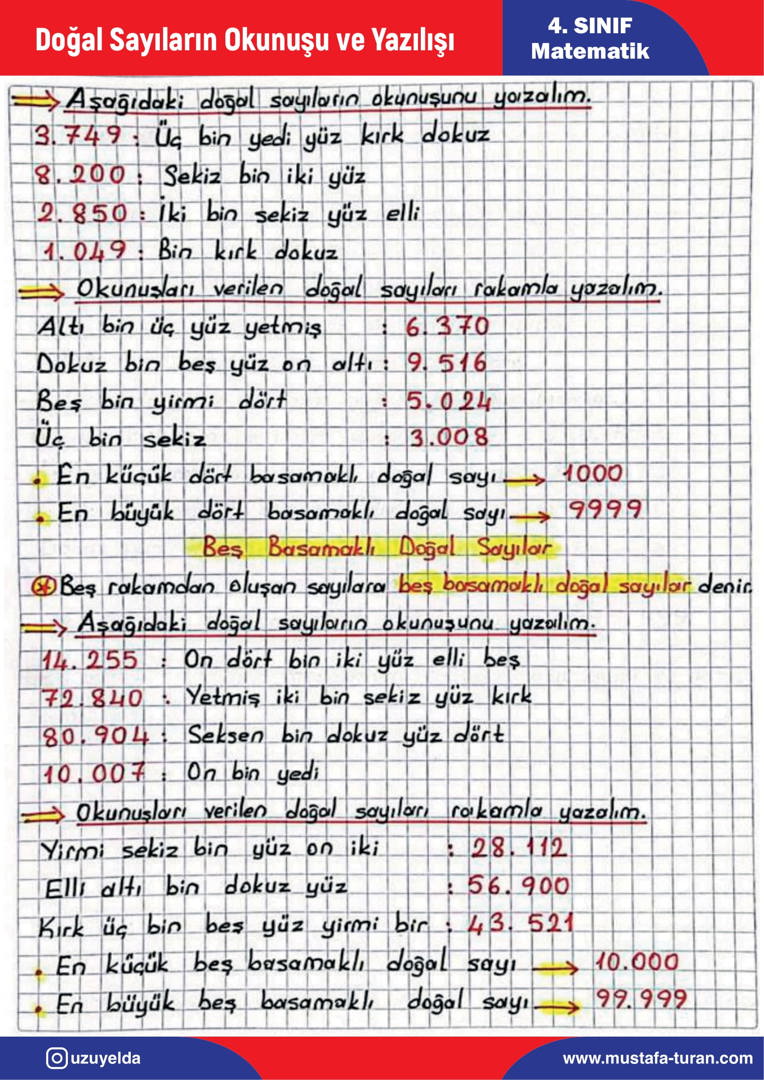 Doğal Sayıların Okunuşu ve Yazılışı
4. SINIF
Matematik
Aşağıdaki doğal sayıların okunuşunu yazalım.
3.749 : Üç bin yedi yüz kırk dokuz
8.200 : Sekiz bin iki yüz
2.850 : İki bin sekiz yüz elli
1.049 : Bin kırk dokuz
Okunuşları verilen doğal sayıları rakamla yazalım.
Altı bin üç yüz yetmiş : 6.370
Dokuz bin beş yüz on altı : 9.516
Beş bin yirmi dört : 5.024
Üç bin sekiz : 3.008
• En küçük dört basamaklı doğal sayı → 1000
• En büyük dört basamaklı doğal sayı → 9999
Beş Basamaklı Doğal Sayılar
Beş rakamdan oluşan sayılara beş basamaklı doğal sayılar denir.
Aşağıdaki doğal sayıların okunuşunu yazalım.
14.255 : On dört bin iki yüz elli beş
72.840 : Yetmiş iki bin sekiz yüz kırk
80.904 : Seksen bin dokuz yüz dört
10.007 : On bin yedi
Okunuşları verilen doğal sayıları rakamla yazalım.
Yirmi sekiz bin yüz on iki : 28.112
Elli altı bin dokuz yüz : 56.900
Kırk üç bin beş yüz yirmi bir : 43.521
• En küçük beş basamaklı doğal sayı → 10.000
• En büyük beş basamaklı doğal sayı → 99.999
uzuyelda
www.mustafa-turan.com